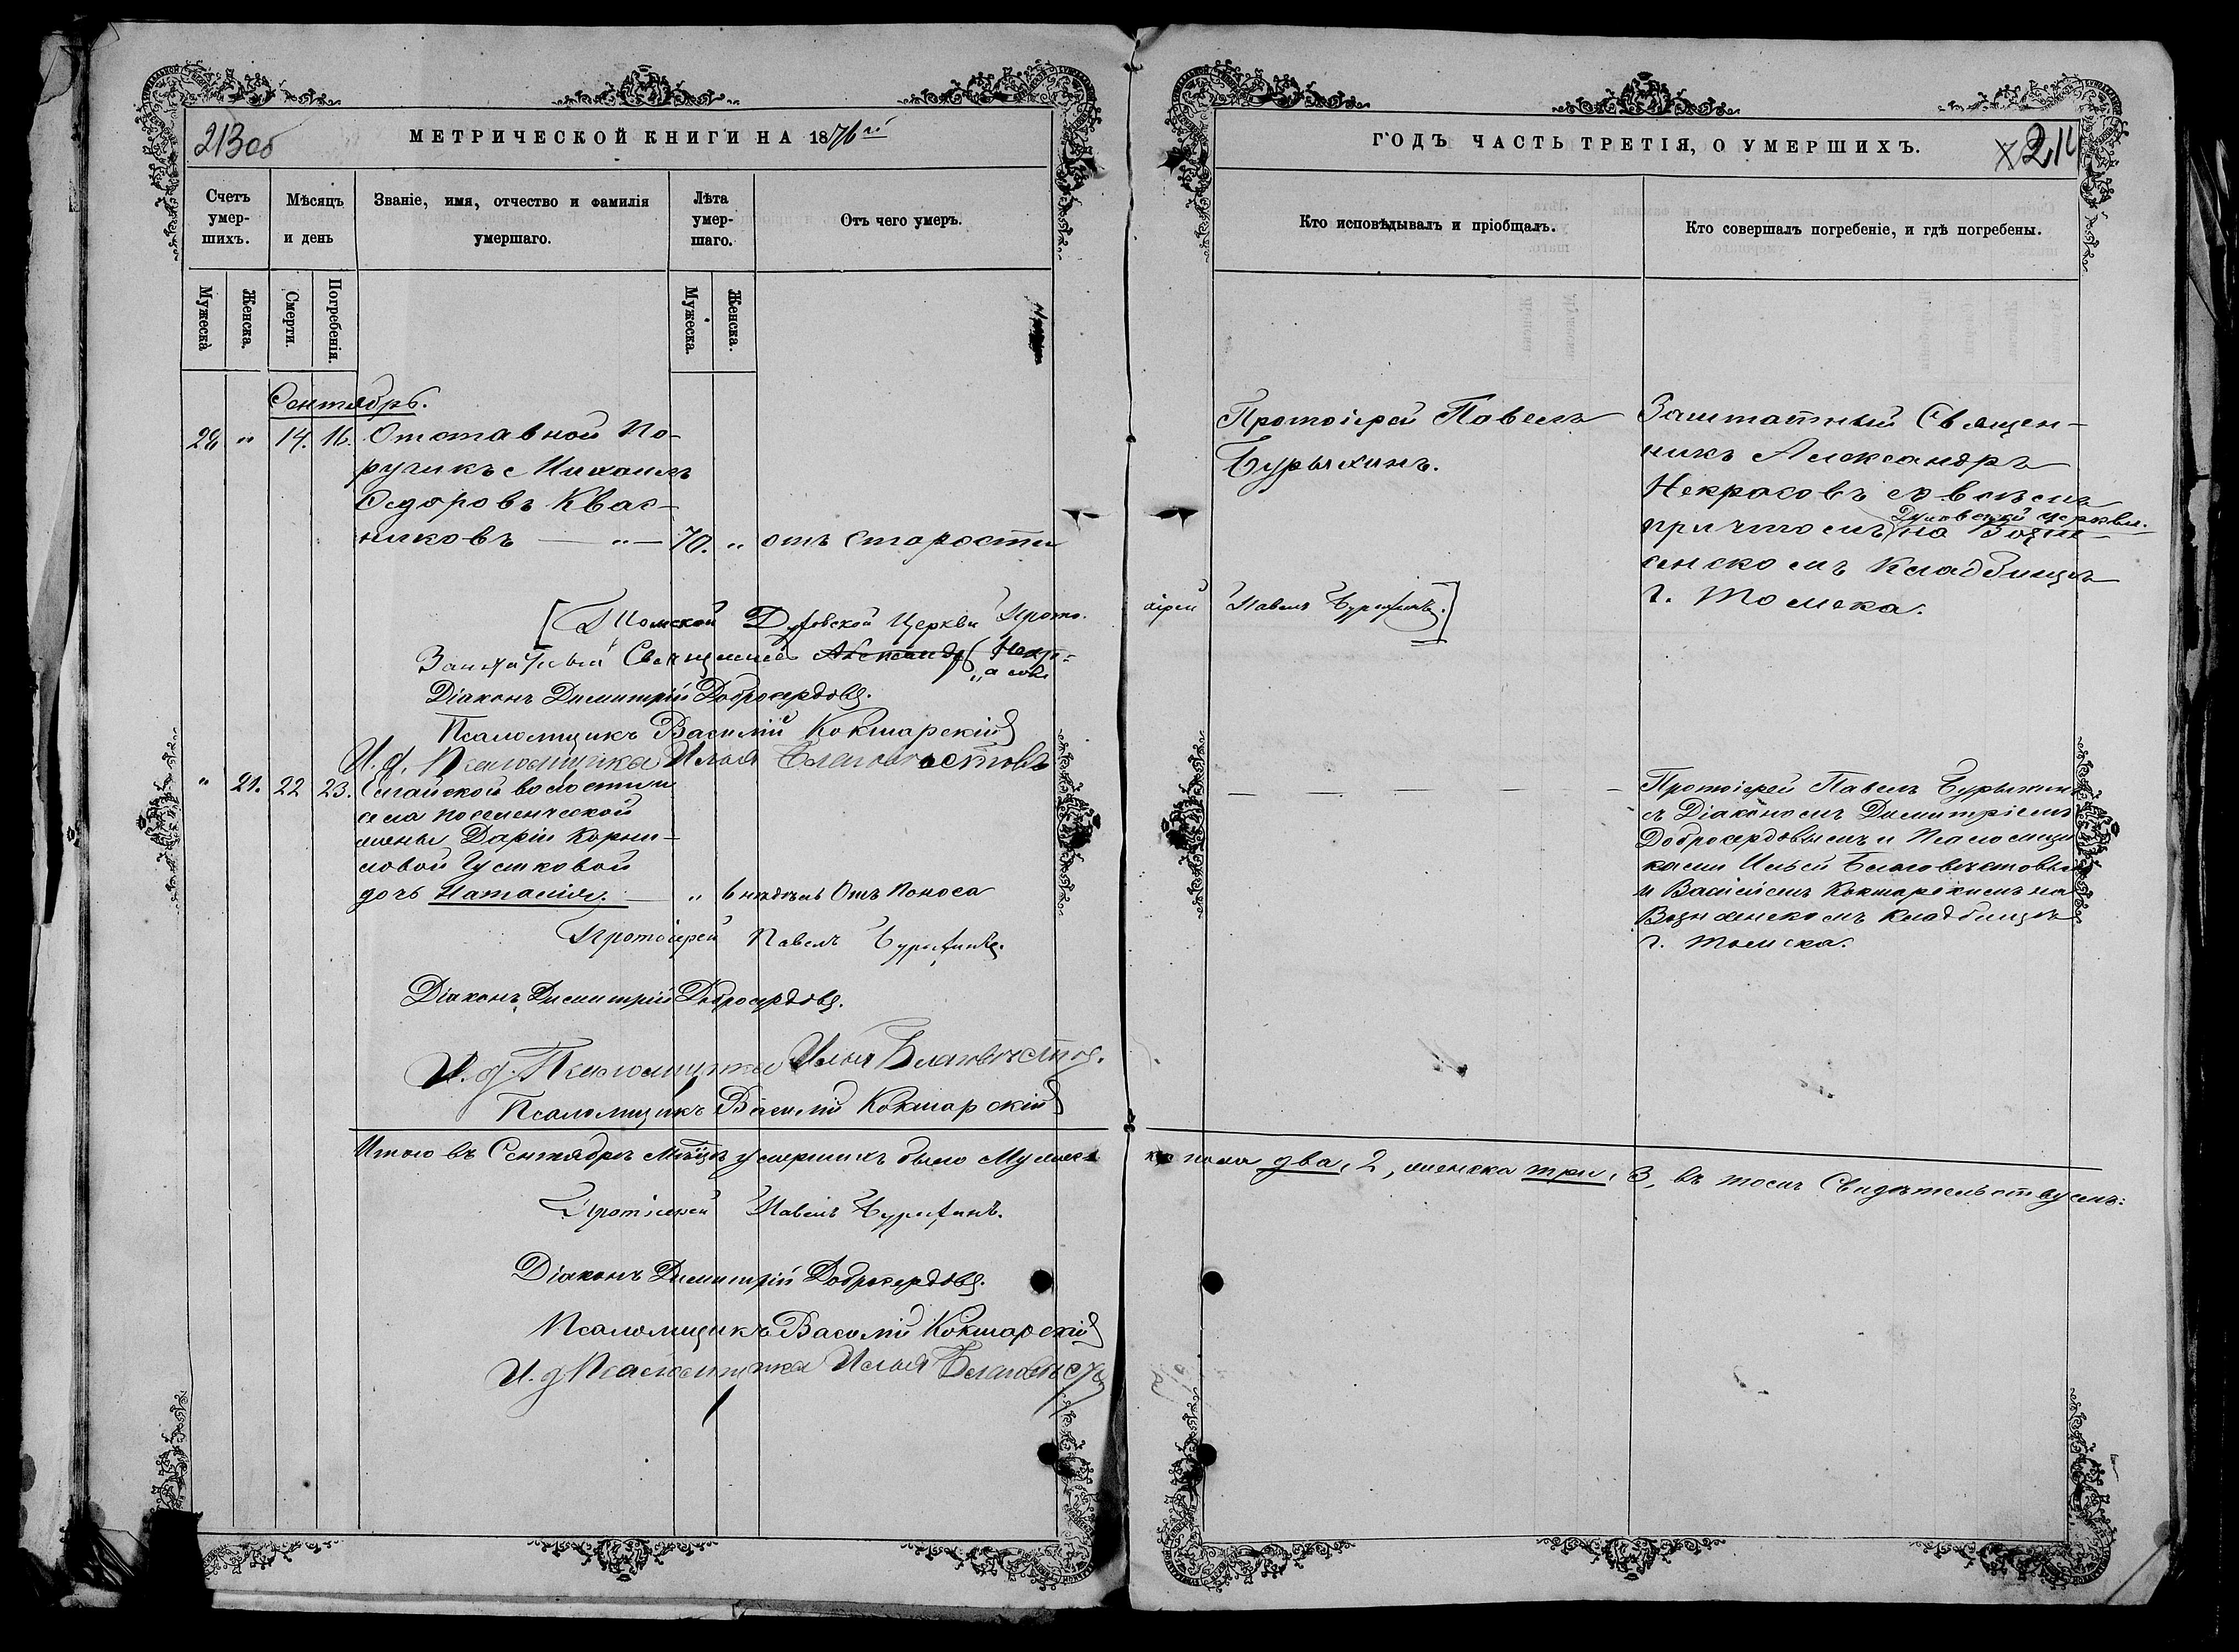 213об
МЕТРИЧЕСКОЙ КНИГИ НА 1876й
Счетъ умершихъ.
Мѣсяцъ и день
Званіе, имя, отчество и фамилія умершаго.
Лѣта умершаго.
Отъ чего умеръ.
Мужеска
Женска.
Смерти.
Погребенія.
Мужеска.
Женска.
Сентябрь.
14. 16. Отставной По-
ручикъ Михаилъ
Ѳедоровъ Квас-
никовъ — „ — 70. „ отъ старости
[Томской Духовской Церкви Прото-
Заштатный Священникъ Александръ Некр-
асовъ
Діаконъ Димитрій Добросердовъ.
Псаломщикъ Василій Кокшарскій
И. д. Псаломщика Илья Благовѣстовъ
„ 21. 22 23. волости
села поселенческой
жены Даріи Корни-
ловой Гусиковой
дочь Наталія. — „ 6 недѣль Отъ поноса
Протоіерей Павелъ Бурыхинъ.
Діаконъ Димитрій Добросердовъ.
И. д. Псаломщика Илья Благовѣстовъ.
Псаломщикъ Василій Кокшарскій
Итого въ Сентябрѣ мѣсяцѣ умершихъ было Мужес-
Протоіерей Павелъ Бурыхинъ.
Діаконъ Димитрій Добросердовъ.
Псаломщикъ Василій Кокшарскій
И. д. Псаломщика Илья Благовѣстовъ
ГОДЪ ЧАСТЬ ТРЕТІЯ, О УМЕРШИХЪ.
Кто исповѣдывалъ и пріобщалъ.
Кто совершалъ погребеніе, и гдѣ погребены.
Протоіерей Павелъ
Бурыхинъ.
оіерей Павелъ Бурыхинъ.]
Заштатный Священ-
никъ Александръ
Некрасовъ со всѣмъ
Духовской церкви.
причтомъ на Возне-
сенскомъ кладбищѣ
г. Томска.
Протоіерей Павелъ Бурыхинъ
съ Діакономъ Димитріемъ
Добросердовымъ и Псаломщи-
ками Ильей Благовѣстовымъ
и Василіемъ Кокшарскимъ на
Вознесенскомъ кладбищѣ
г. Томска.
ка пола два, 2, женска три, 3, въ томъ Свидѣтельствуемъ: